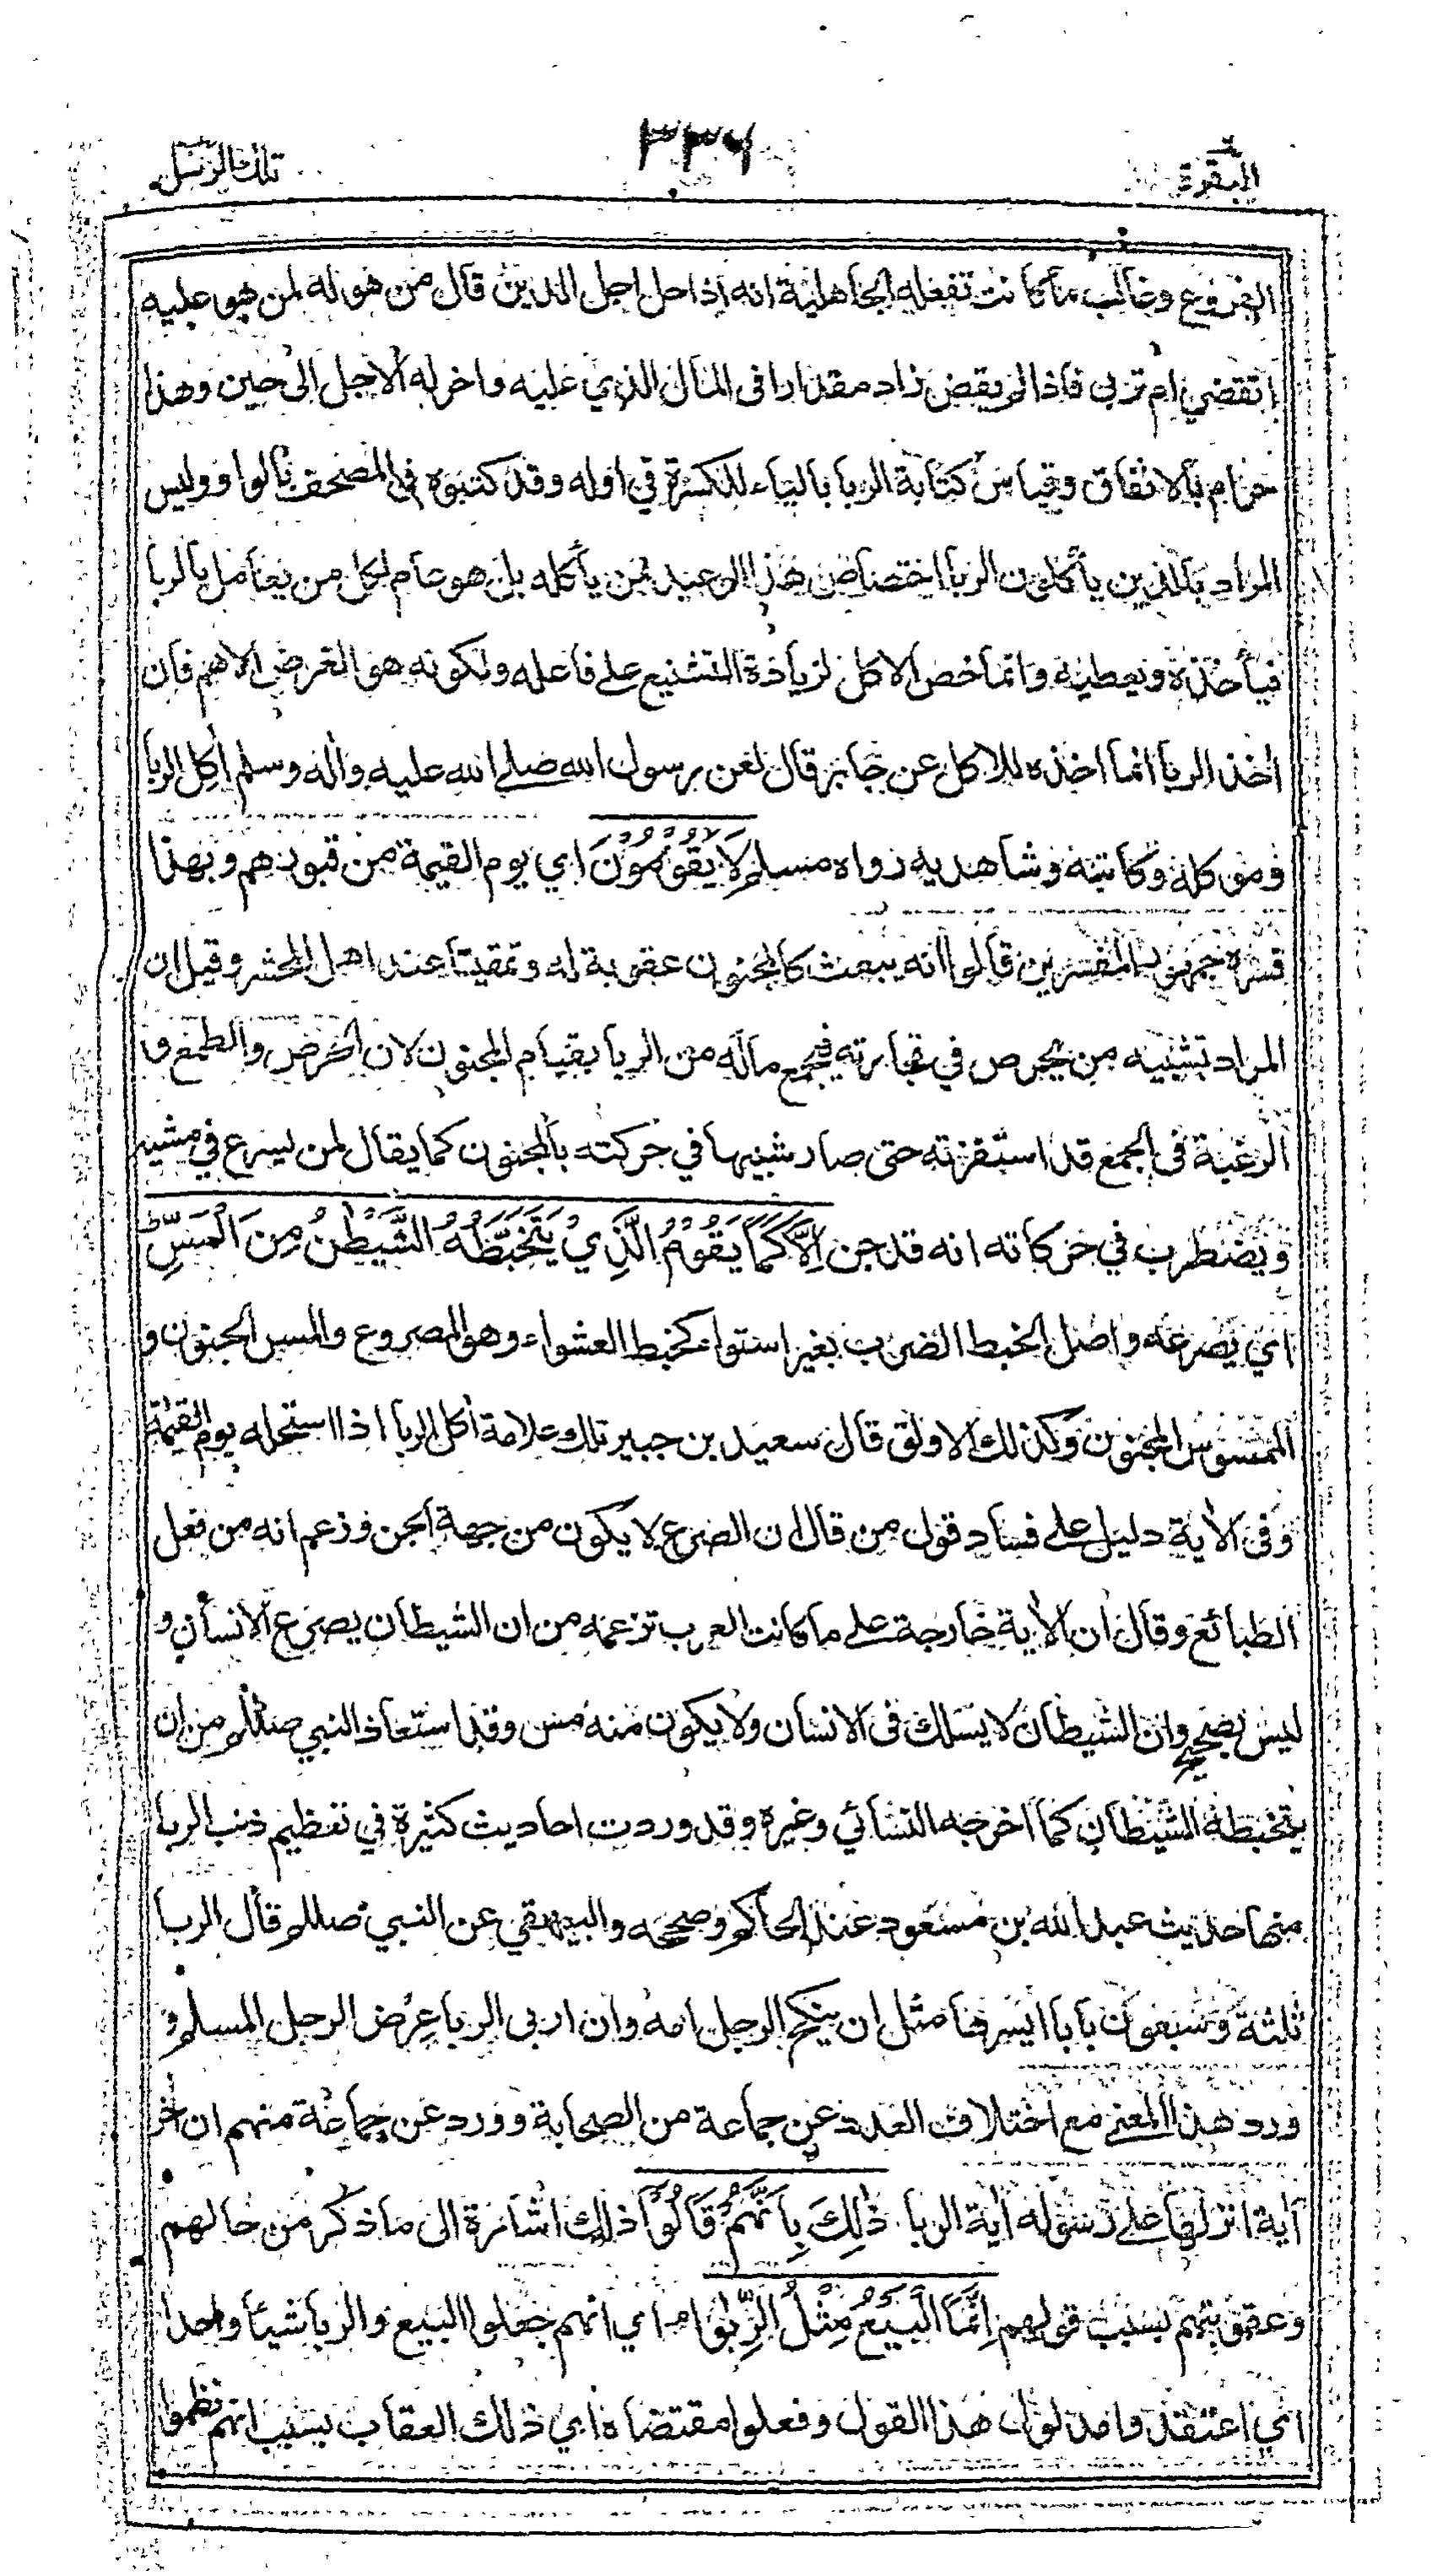 البقرة
٣٣٦
تلك الرسل
الفروع وغالب ما كانت تفعله الجاهلية انه اذا حل اجل الدين قال من هو له لمن هو عليه
اتقضي ام تربي فاذا لم يقض زاد مقدارا في المال الذي عليه واخر له الاجل الى حين وهذا
حرام بالاتفاق وقياس كتابة الربا بالياء للكسرة في اوله وقد كتبوه في المصحف بالواو وليس
المراد بالذين يأكلون الربا اختصاص هذا الوعيد بمن يأكله بل هو عام لكل من يعامل بالربا
فيأخذه ويعطيه وانما خص الاكل لزيادة التشنيع على فاعله ولكونه هو الغرض الاهم فان
اخذ الربا انما اخذه للاكل عن جابر قال لعن رسول الله صلى الله عليه واٰله وسلم اٰكل الربا
وموكله وكاتبه وشاهديه رواه مسلم لَا يَقُوْمُوْنَ اي يوم القيمة من قبورهم وبهذا
فسره جمهور المفسرين قالوا انه يبعث كالمجنون عقوبة له وتمقيتا عند اهل المحشر وقيل ان
المراد تشبيه من يحرص في تجارته فيجمع ماله من الربا بقيام المجنون لان الحرص والطمع و
الرغبة في الجمع قد استفزته حتى صار شبيها في حركته بالمجنون كما يقال لمن يسرع في مشيه
ويضطرب في حركاته انه قد جن اِلَّا كَمَا يَقُوْمُ الَّذِيْ يَتَخَبَّطُهُ الشَّيْطٰنُ مِنَ الْمَسِّ ط
اي يصرعه واصل الخبط الضرب بغير استواء كخبط العشواء وهو المصروع والمس الجنون و
الممسوس المجنون وكذلك الاولق قال سعيد بن جبير تلك علامة اٰكل الربا اذا استحله يوم القيٰمة
وفي الاٰية دليل على فساد قول من قال ان الصرع لا يكون من جهة الجن وزعم انه من فعل
الطبائع وقال ان الاٰية خارجة على ما كانت العرب تزعمه من ان الشيطان يصرع الانسان و
ليس بصحيح وان الشيطان لا يسلك في الانسان ولا يكون منه مس وقد استعاذ النبي صللم من ان
يتخبطه الشيطان كما اخرجه النسائي وغيره وقد وردت احاديث كثيرة في تعظيم ذنب الربا
منها حديث عبد الله بن مسعود عند الحاكم وصححه والبيهقي عن النبي صللم قال الربا
ثلثة وسبعون بابا ايسرها مثل ان ينكح الرجل امه وان اربى الربا عرض الرجل المسلم و
ورد هذا المعنى مع اختلاف العدد عن جماعة من الصحابة وورد عن جماعة منهم ان اٰخر
اٰية انزلها على رسوله اٰية الربا ذٰلِكَ بِاَنَّهُمْ قَالُوْٓا ذلك اشارة الى ما ذكر من حالهم
وعقوبتهم بسبب قولهم اِنَّمَا الْبَيْعُ مِثْلُ الرِّبٰوا م اي انهم جعلوا البيع والربا شيئا واحدا
اي اعتقدوا مدلول هذا القول وفعلوا مقتضاه اي ذلك العقاب بسبب انهم نظموا